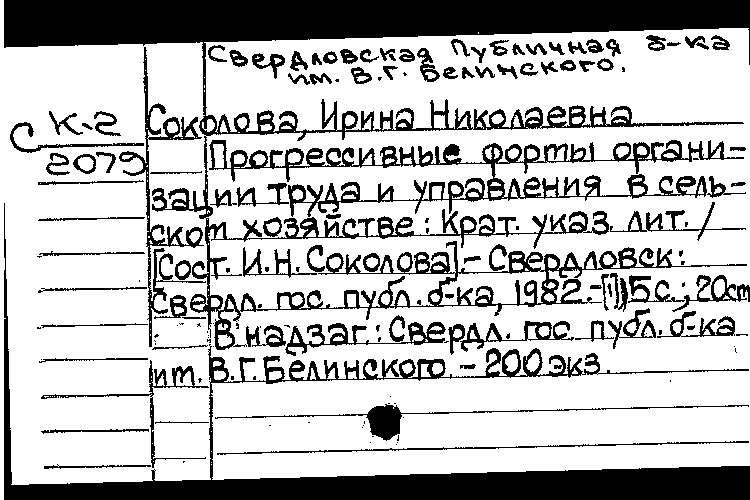 Свердловская Публичная б-ка
им. В.Г. Белинского.
С К-2
2079
Соколова, Ирина Николаевна
Прогрессивные формы органи-
зации труда и управления в сель-
ском хозяйстве : Крат. указ. лит. /
[Сост. И.Н. Соколова]. - Свердловск :
Свердл. гос. публ. б-ка, 1982. - 15 с. ; 20см
В надзаг.: Свердл. гос. публ. б-ка
им. В.Г. Белинского. - 200 экз.